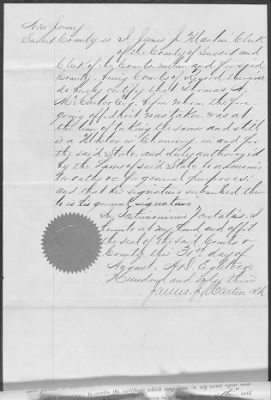 New Jersey
Sussex County ss I James J. Martin Clerk
of the County of Sussex and
Clerk of the Courts in and for said
County. Being Courts of Record thereof
do hereby certify that Thomas
Esq. before whom the fore-
going affidavit was taken was at
the time of taking the same and still
is a Master in Chancery in and for
the said State and duly authorized
by the Laws of said State to administer
oaths &c for general purposes
and that his signature subscribed there
to is his genuine signature.
In Testimonium Veritatis. I
hereunto set my hand and affix
the seal of the said Courts &
County this day of
August. A.D. Eighteen
Hundred and Sixty three
James J. Martin Clk